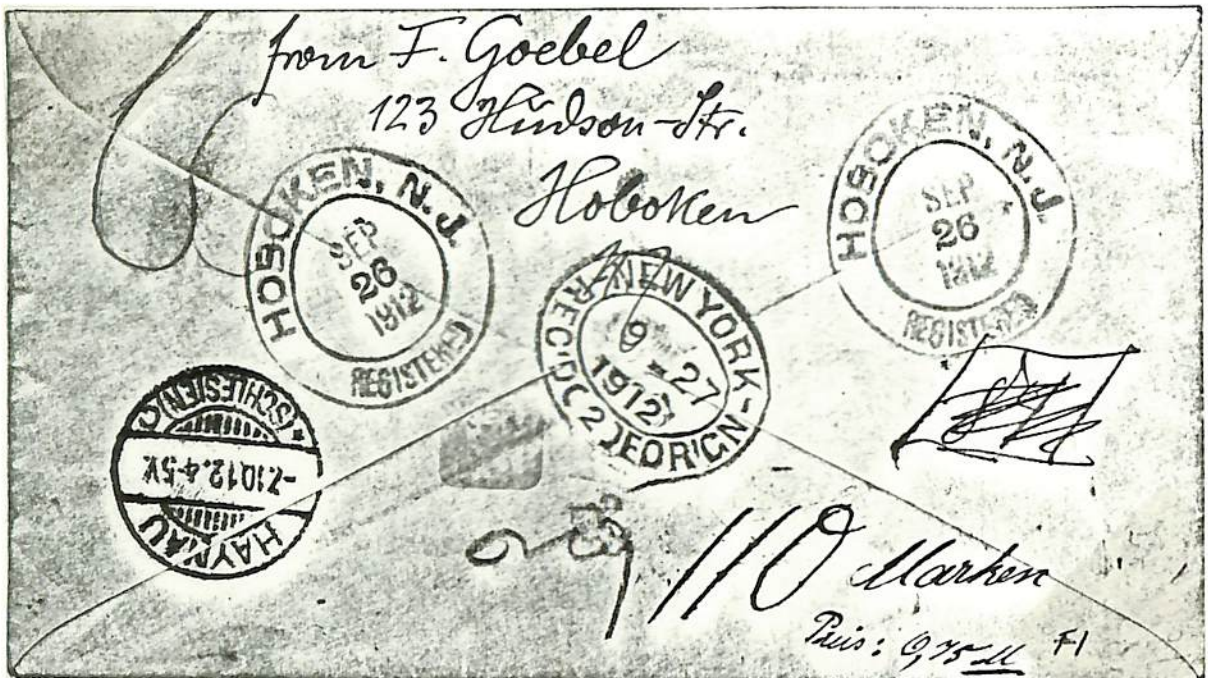 from F. Goebel
123 Hudson-Str.
Hoboken
HOBOKEN, N.J.
SEP
26
1912
REGISTERED
HOBOKEN, N.J.
SEP
26
1912
REGISTERED
NEW YORK-
9-27
1912
REC'D
HAYNAU
-7.10.12.4-5V.
(SCHLESIEN)
110 Marken
Preis: 0,75 M